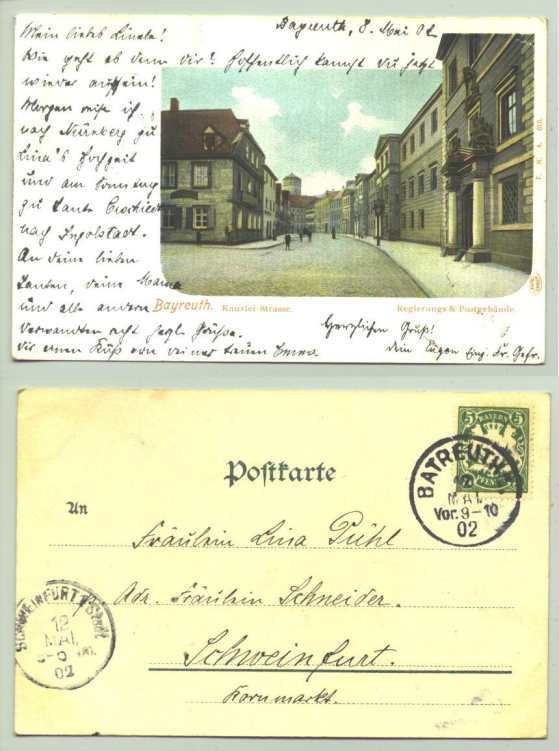 Bayreuth, 8. Mai 02
Mein liebes Linele!
Wie geht es denn dir? Hoffentlich kannst du jetzt
wieder aufsein!
Morgen reise ich
nach Nürnberg zu
Lina's Hochzeit
und am Sonntag
zu Tante
nach Ingolstadt.
An deine lieben
Tanten, deine Mama
und alle andern
Verwandten recht Grüße.
dir einen Kuß von deiner treuen Emma
Bayreuth. Kanzlei-Strasse.
Regierungs & Postgebäude.
Herzlichen Gruß!
dein Eugen
Postkarte
BAYERN
5 5
PFENNIG
BAYREUTH
MAI
Vor. 9-10
02
An
Fräulein Lina Pühl
Adr. Fräulein Schneider.
Schweinfurt.
Kornmarkt.
SCHWEINFURT Stadt
12
MAI
02